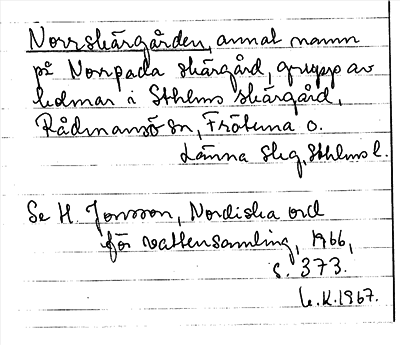 Norrskärgården, annat namn
på Norrpada skärgård, grupp av
holmar i Sthlms skärgård,
Rådmansö sn, Frötuna o.
Länna skg, Sthlms l.
Se H. Jonsson, Nordiska ord
för vattensamling, 1966,
s. 373.
L.K. 1967.